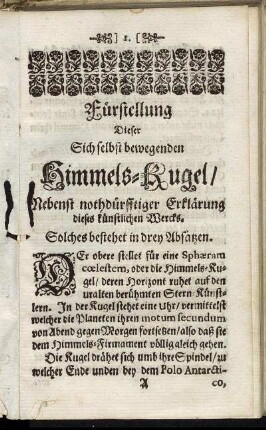 ] 1. [
Fürstellung
Dieser
Sich selbst bewegenden
Himmels-Kugel/
Nebenst nothdürfftiger Erklärung
dieses künstlichen Wercks.
Solches bestehet in drey Absätzen.
DEr obere stellet für eine Sphæram
cœlestem, oder die Himmels-Ku-
gel/ deren Horizont ruhet auf den
uralten berühmten Stern-Künst-
lern. In der Kugel stehet eine Uhr/ vermittelst
welcher die Planeten ihren motum secundum
von Abend gegen Morgen fortsetzen/ also daß sie
dem Himmels-Firmament völlig gleich gehen.
Die Kugel drähet sich umb ihre Spindel/ zu
welcher Ende unden bey dem Polo Antarcti-
A co,